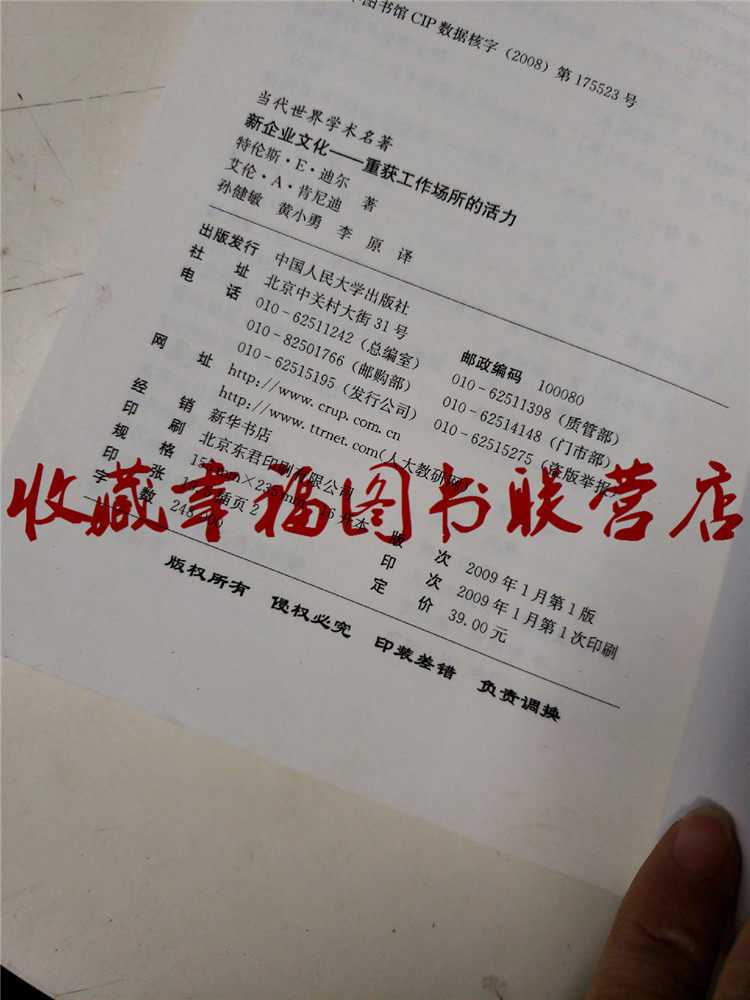 图书馆 CIP 数据核字（2008）第 175523 号
当代世界学术名著
新企业文化——重获工作场所的活力
特伦斯·E·迪尔
艾伦·A·肯尼迪 著
孙健敏 黄小勇 李 原 译
出版发行 中国人民大学出版社
社 址 北京中关村大街 31 号 邮政编码 100080
电 话 010－62511242（总编室） 010－62511398（质管部）
010－82501766（邮购部） 010－62514148（门市部）
010－62515195（发行公司） 010－62515275（盗版举报）
网 址 http://www.crup.com.cn
http://www.ttrnet.com(人大教研网)
经 销 新华书店
印 刷 北京东君印刷有限公司
规 格 235 mm 16 开本 版 次 2009 年 1 月第 1 版
印 张 插页 2 印 次 2009 年 1 月第 1 次印刷
字 数 248 000 定 价 39.00 元
版权所有 侵权必究 印装差错 负责调换
收藏幸福图书联营店